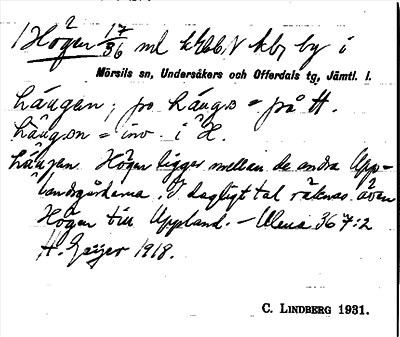 1 Högen 17/36 ml krbb, V kby by i
Mörsils sn, Undersåkers och Offerdals tg, Jämtl. l.
häugen; po häugo = på H.
häugon = inv. i H.
häugen Högen ligger mellan de andra Upp-
landsgårdarna. I dagligt tal räknas även
Högen till Uppland. – Ulma 367:2
H. Geijer 1918.
C. LINDBERG 1931.